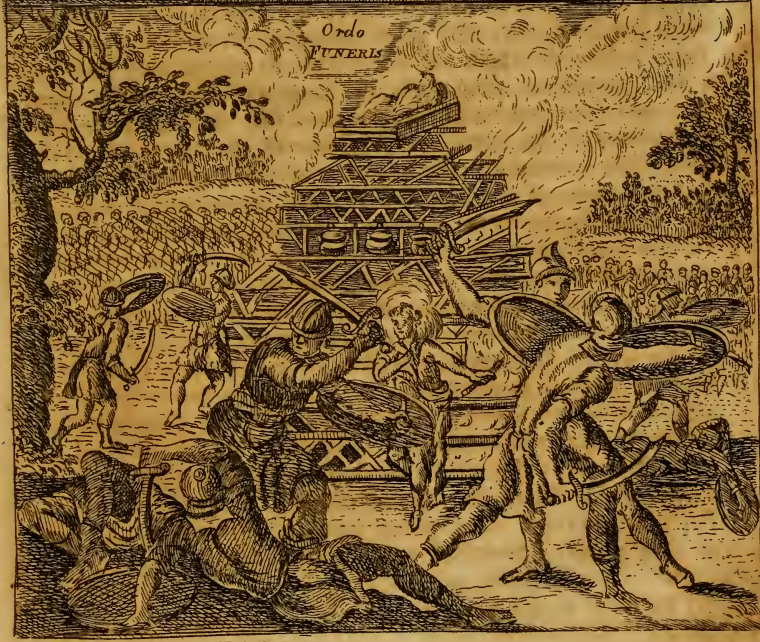 Ordo
FUNERIS